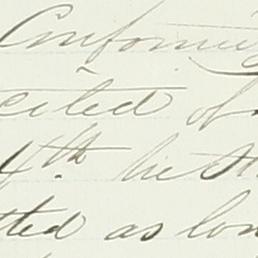 Conforming
cited of
4th. he
tted as lon